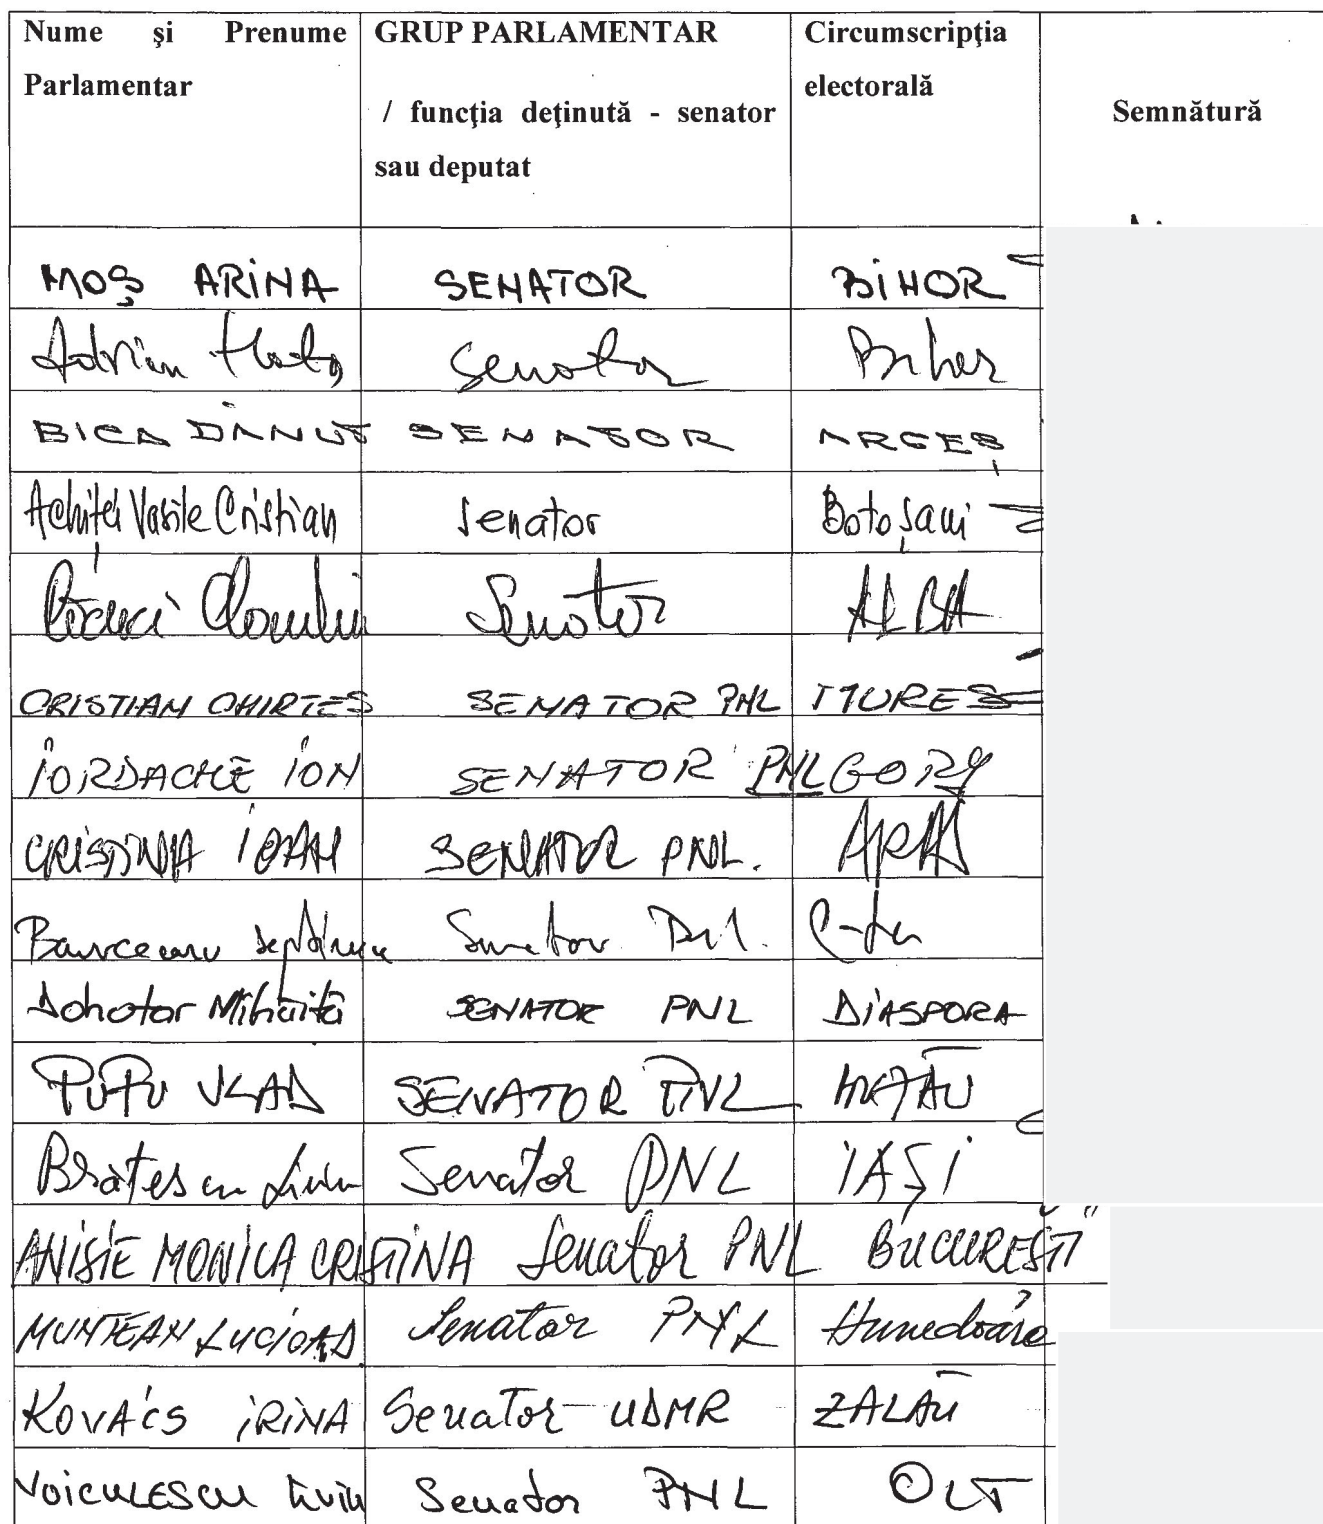 Nume și Prenume GRUP PARLAMENTAR Circumscripția
Parlamentar electorală
/ funcția deținută - senator Semnătură
sau deputat
MOȘ ARINA SENATOR BIHOR
Adrian Senator Bihor
BICA DĂNUȚ SENATOR ARGEȘ
Achiței Vasile Cristian Senator Botoșani
Senator ALBA
CRISTIAN CHIRTEȘ SENATOR PNL MUREȘ
IORDACHE ION SENATOR PNL GORJ
CRISTINA IOAN SENATOR PNL. ARAD
Senator PNL. C-ța
Dohotar Mihăiță SENATOR PNL DIASPORA
PUFU VLAD SENATOR PNL
Brătescu Liviu Senator PNL IAȘI
ANISIE MONICA CRISTINA Senator PNL BUCUREȘTI
MUNTEAN Senator PNL Hunedoara
KOVÁCS IRINA Senator UDMR ZALĂU
VOICULESCU Liviu Senator PNL OLT